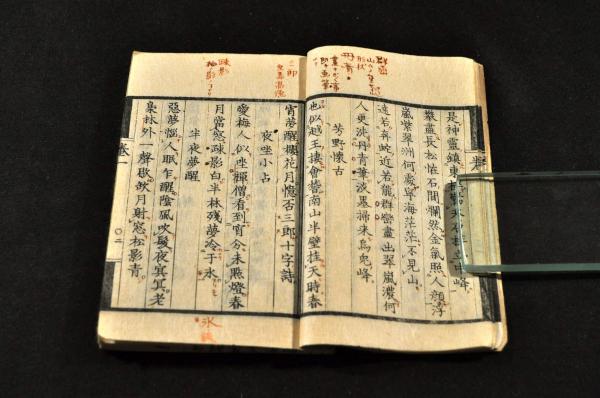 是神靈鎮東
峰
巖盡長松恠石間爛然金氣照人顏浮
嵐紫翠洲何處海茫茫不見山
遠若奔蛇近若龍群巒盡出翠嵐濃何
人更洗丹青筆淡墨掃來烏兜峰
芳野懷古
也似越王棲會嵆南山半壁挂天時春
宵夢醒欄花月憶否三郎十字詩
夜坐小占
愛梅人似坐禪僧看到宵分未點燈春
月當窓疎影白半林殘夢冷于氷
半夜夢醒
惡夢惱人眠乍醒陰風吹髮夜冥冥老
梟林外一聲歇欲月射窓松影青
卷一
形狀
丹青
三郎
疎影
氷